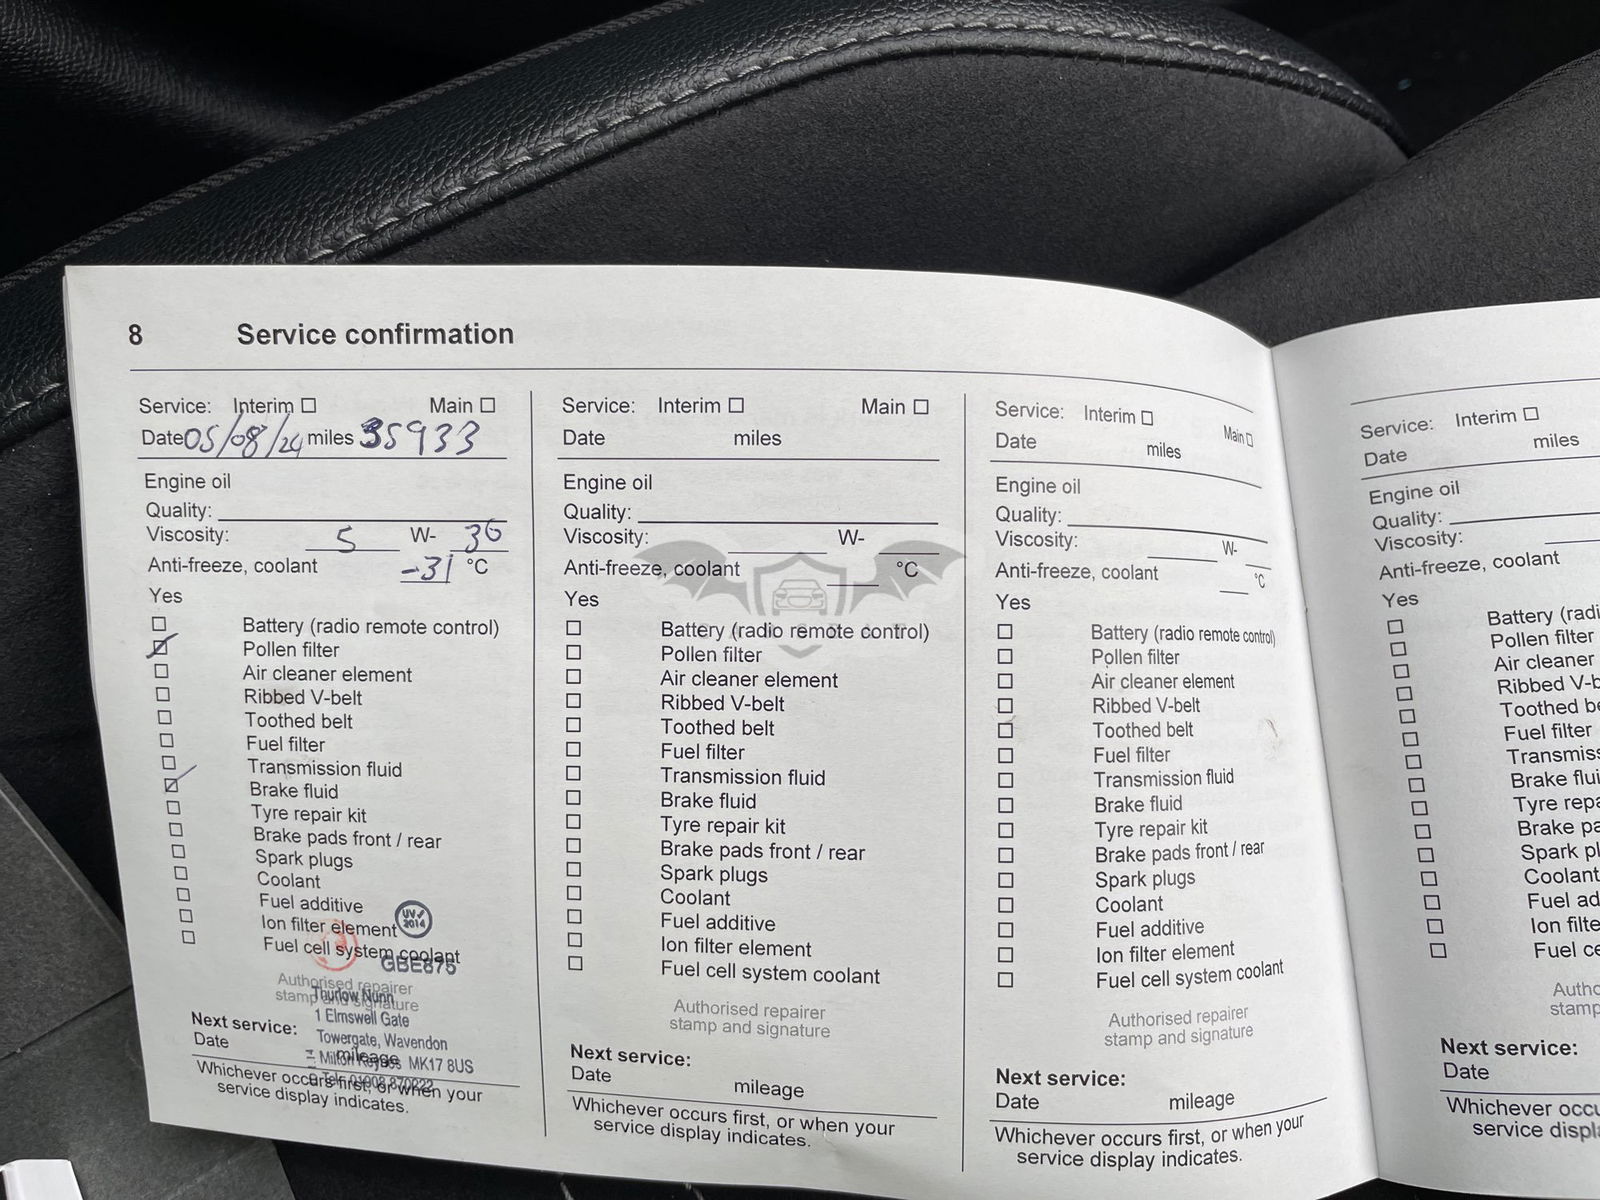 8 Service confirmation
Service: Interim ☐ Main ☐
Date 05/08/24 miles 35933
Engine oil
Quality:
Viscosity: 5 W- 30
Anti-freeze, coolant -31 °C
Yes
Battery (radio remote control)
Pollen filter
Air cleaner element
Ribbed V-belt
Toothed belt
Fuel filter
Transmission fluid
Brake fluid
Tyre repair kit
Brake pads front / rear
Spark plugs
Coolant
Fuel additive
Ion filter element
UV 2014
Fuel cell system coolant
GBE875
Authorised repairer
stamp and signature
Thurlow Nunn
1 Elmswell Gate
Towergate, Wavendon
Milton Keynes MK17 8US
Tel: 01908 870222
Next service:
Date mileage
Whichever occurs first, or when your
service display indicates.
Service: Interim ☐ Main ☐
Date miles
Engine oil
Quality:
Viscosity: W-
Anti-freeze, coolant °C
Yes
Battery (radio remote control)
Pollen filter
Air cleaner element
Ribbed V-belt
Toothed belt
Fuel filter
Transmission fluid
Brake fluid
Tyre repair kit
Brake pads front / rear
Spark plugs
Coolant
Fuel additive
Ion filter element
Fuel cell system coolant
Authorised repairer
stamp and signature
Next service:
Date mileage
Whichever occurs first, or when your
service display indicates.
Service: Interim ☐ Main ☐
Date miles
Engine oil
Quality:
Viscosity: W-
Anti-freeze, coolant °C
Yes
Battery (radio remote control)
Pollen filter
Air cleaner element
Ribbed V-belt
Toothed belt
Fuel filter
Transmission fluid
Brake fluid
Tyre repair kit
Brake pads front / rear
Spark plugs
Coolant
Fuel additive
Ion filter element
Fuel cell system coolant
Authorised repairer
stamp and signature
Next service:
Date mileage
Whichever occurs first, or when your
service display indicates.
Service: Interim ☐
Date miles
Engine oil
Quality:
Viscosity:
Anti-freeze, coolant
Yes
Battery (radi
Pollen filter
Air cleaner
Ribbed V-b
Toothed be
Fuel filter
Transmiss
Brake flui
Tyre repa
Brake pa
Spark pl
Coolant
Fuel ad
Ion filte
Fuel ce
Autho
stamp
Next service:
Date
Whichever occu
service displ